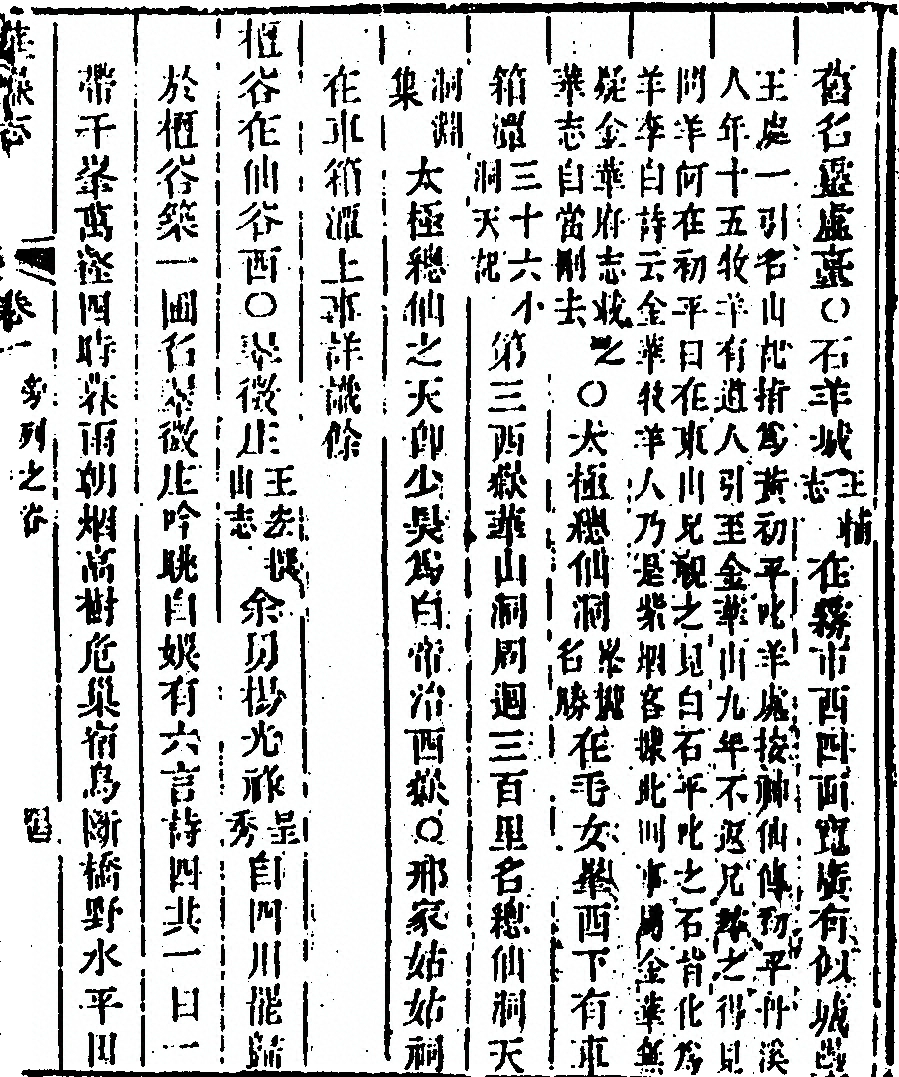 舊名靈虛臺○石羊城王悌志在霧市西四面寬廣有似城
王處一引名山記指為黃初平叱羊處按神仙傳初平丹溪
人年十五牧羊有道人引至金華山九年不返兄尋之得見
問羊何在初平曰在東山兄視之見白石平叱之石皆化為
羊李白詩云金華牧羊人乃是紫烟客據此則事屬金華無
疑金華府志載之
華志自當刪去
○太極總仙洞岳瀆名勝在毛女峯西下有車
箱潭三十六小洞天記第三西嶽華山洞周迴三百里名總仙洞天
洞淵集太極總仙之天卽少昊為白帝治西嶽○邢家姑姑祠
在車箱潭上事詳識餘
櫃谷在仙谷西○翠微庄王宏撰山志余舅楊光祚呈秀自四川罷歸
於櫃谷築一圃名翠微庄吟眺自娛有六言詩四其一曰一
帶千峯萬壑四時暮雨朝烟高樹危巢宿鳥斷橋野水平田
卷一 旁列之谷